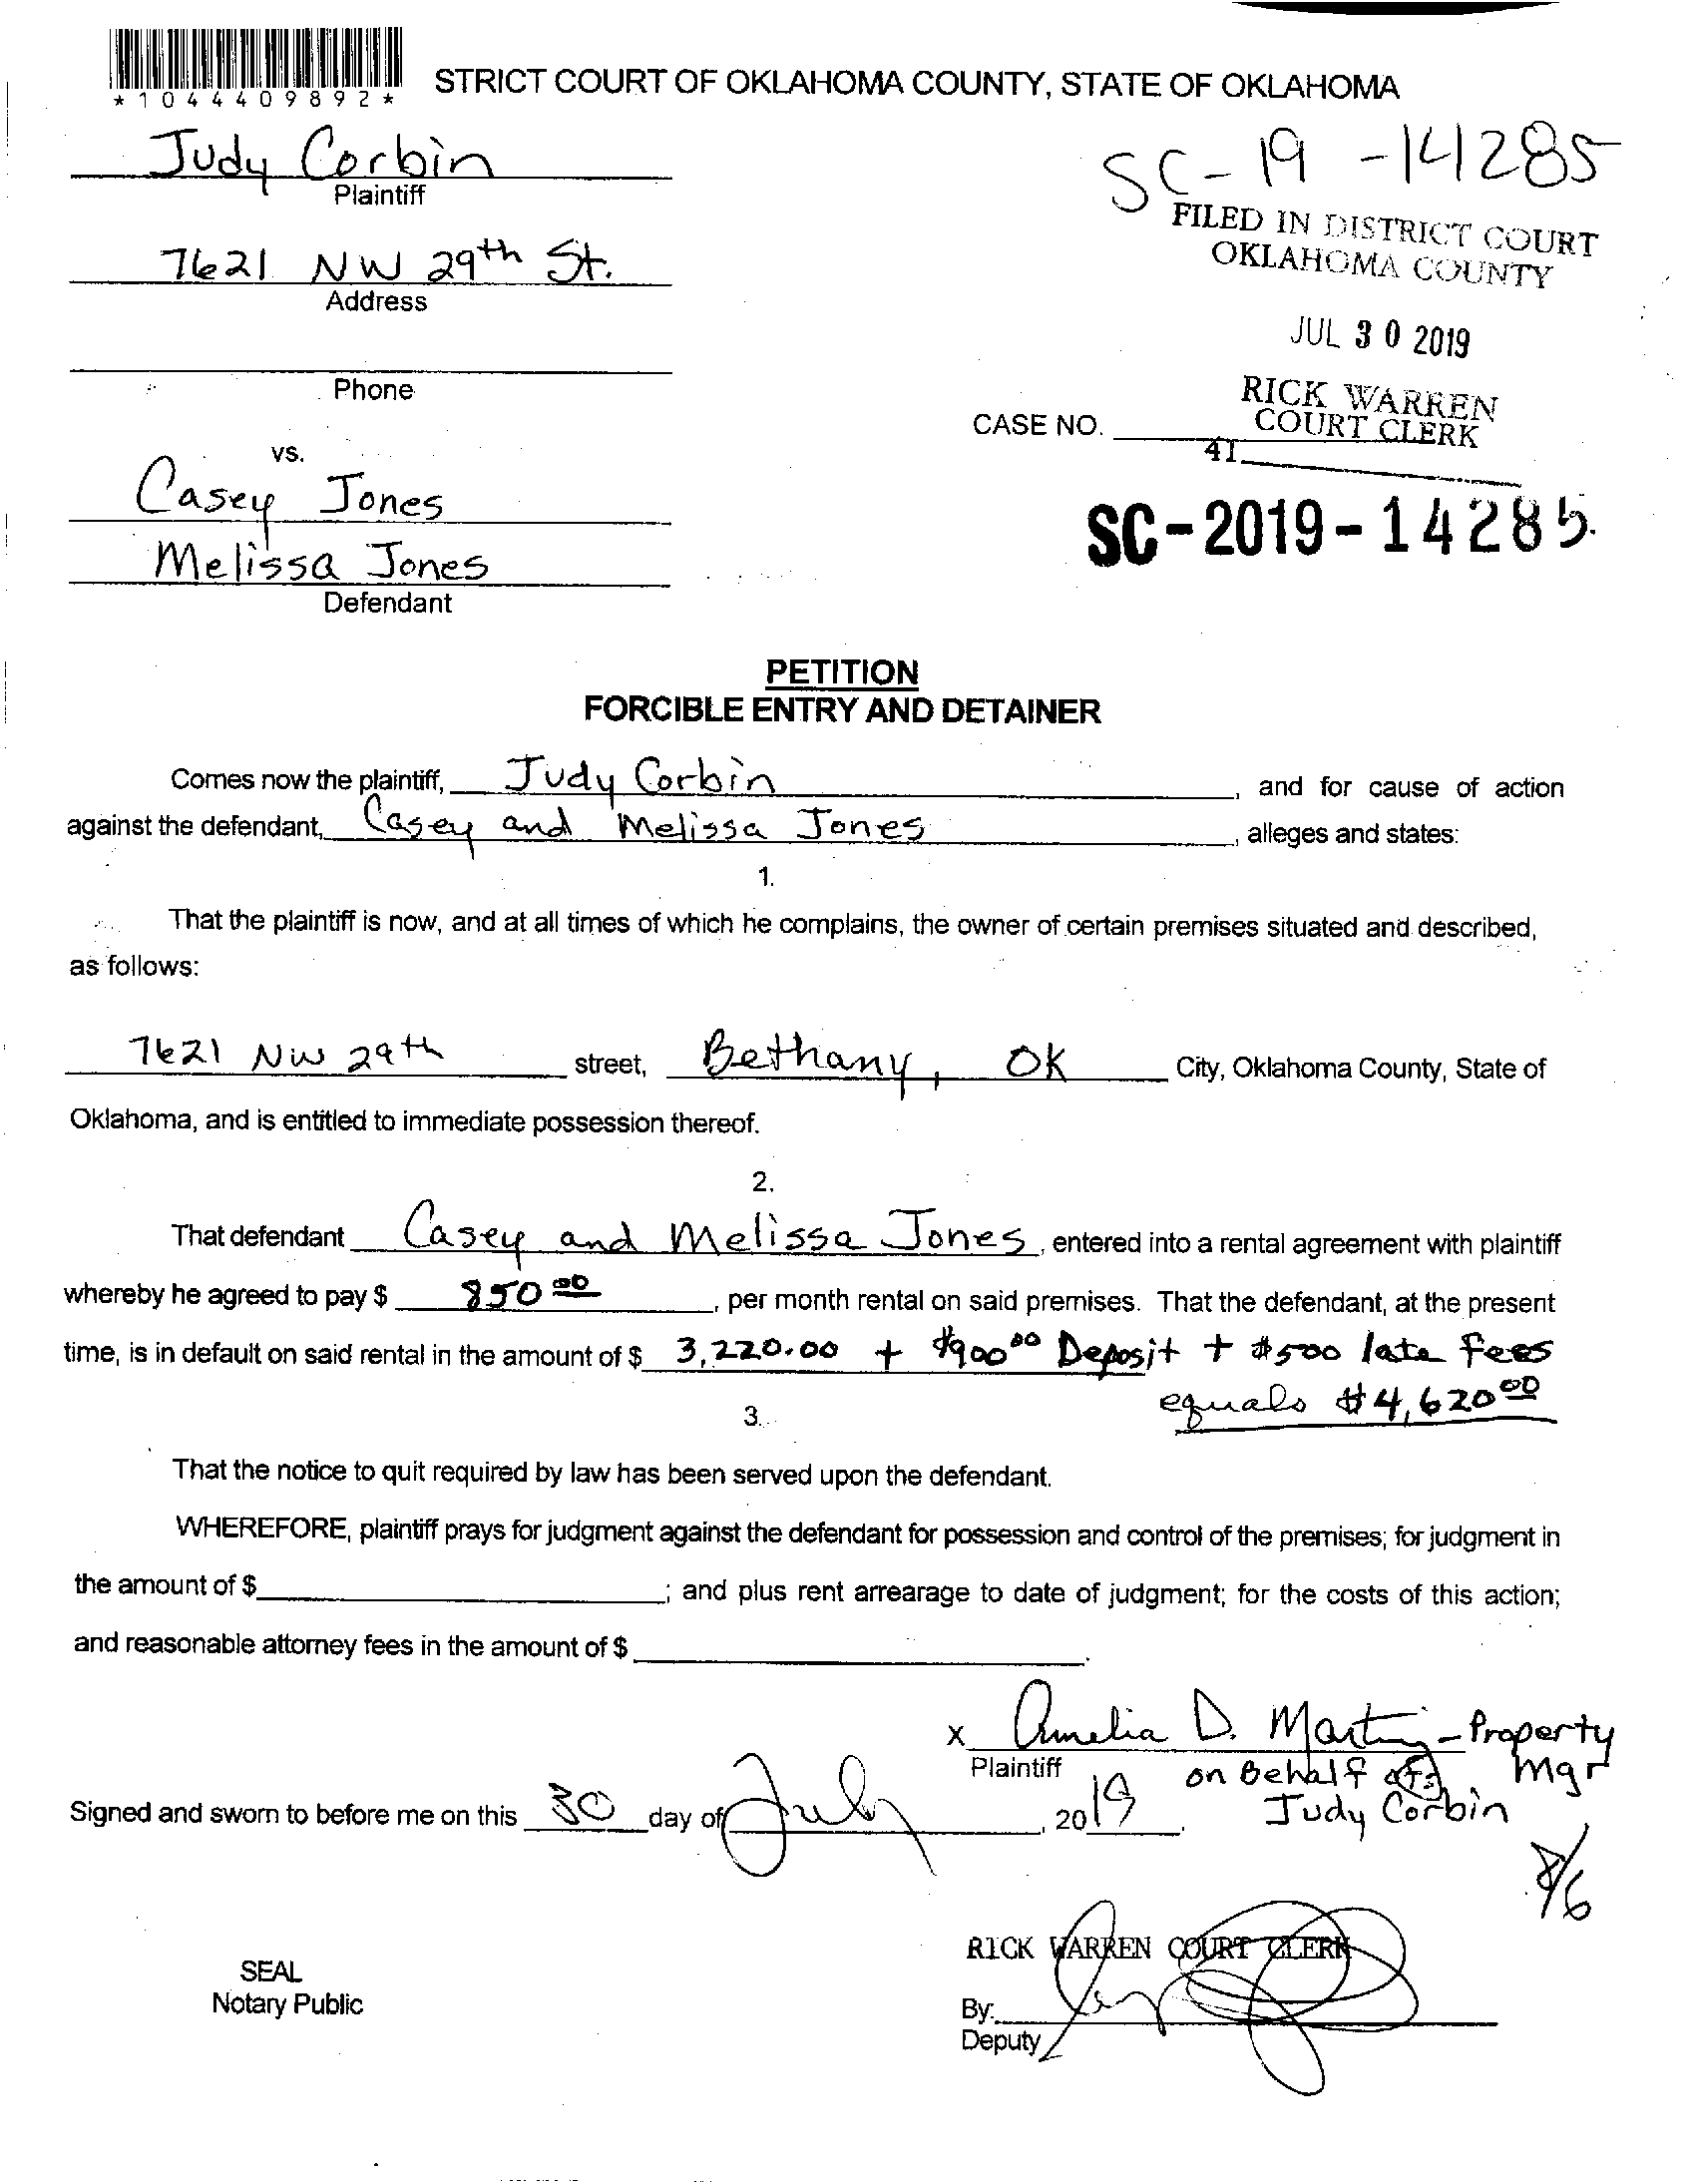 *1044409892*
STRICT COURT OF OKLAHOMA COUNTY, STATE OF OKLAHOMA
Judy Corbin
Plaintiff
SC-19-14285
FILED IN DISTRICT COURT
OKLAHOMA COUNTY
7621 NW 29th St.
Address
JUL 30 2019
Phone
RICK WARREN
COURT CLERK
CASE NO.
41
vs.
Casey Jones
Melissa Jones
Defendant
SC-2019-14285
PETITION
FORCIBLE ENTRY AND DETAINER
Comes now the plaintiff, Judy Corbin, and for cause of action
against the defendant, Casey and Melissa Jones, alleges and states:
1.
That the plaintiff is now, and at all times of which he complains, the owner of certain premises situated and described,
as follows:
7621 NW 29th street, Bethany, OK City, Oklahoma County, State of
Oklahoma, and is entitled to immediate possession thereof.
2.
That defendant Casey and Melissa Jones, entered into a rental agreement with plaintiff
whereby he agreed to pay $ 850 00, per month rental on said premises. That the defendant, at the present
time, is in default on said rental in the amount of $ 3,220.00 + $900 00 Deposit + $500 late fees
equals $4,620 00
3.
That the notice to quit required by law has been served upon the defendant.
WHEREFORE, plaintiff prays for judgment against the defendant for possession and control of the premises; for judgment in
the amount of $ ; and plus rent arrearage to date of judgment; for the costs of this action;
and reasonable attorney fees in the amount of $ .
x Amelia D. Martin - Property
Mgr
Plaintiff
on Behalf of
Judy Corbin
Signed and sworn to before me on this 30 day of July, 2019.
8/6
RICK WARREN COURT CLERK
SEAL
Notary Public
By:
Deputy